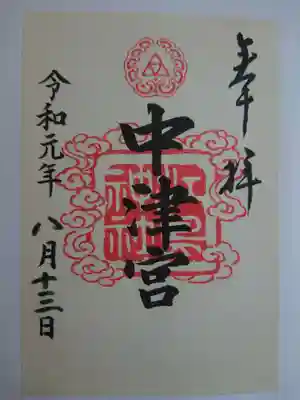 奉拝
中津宮
令和元年 八月十三日